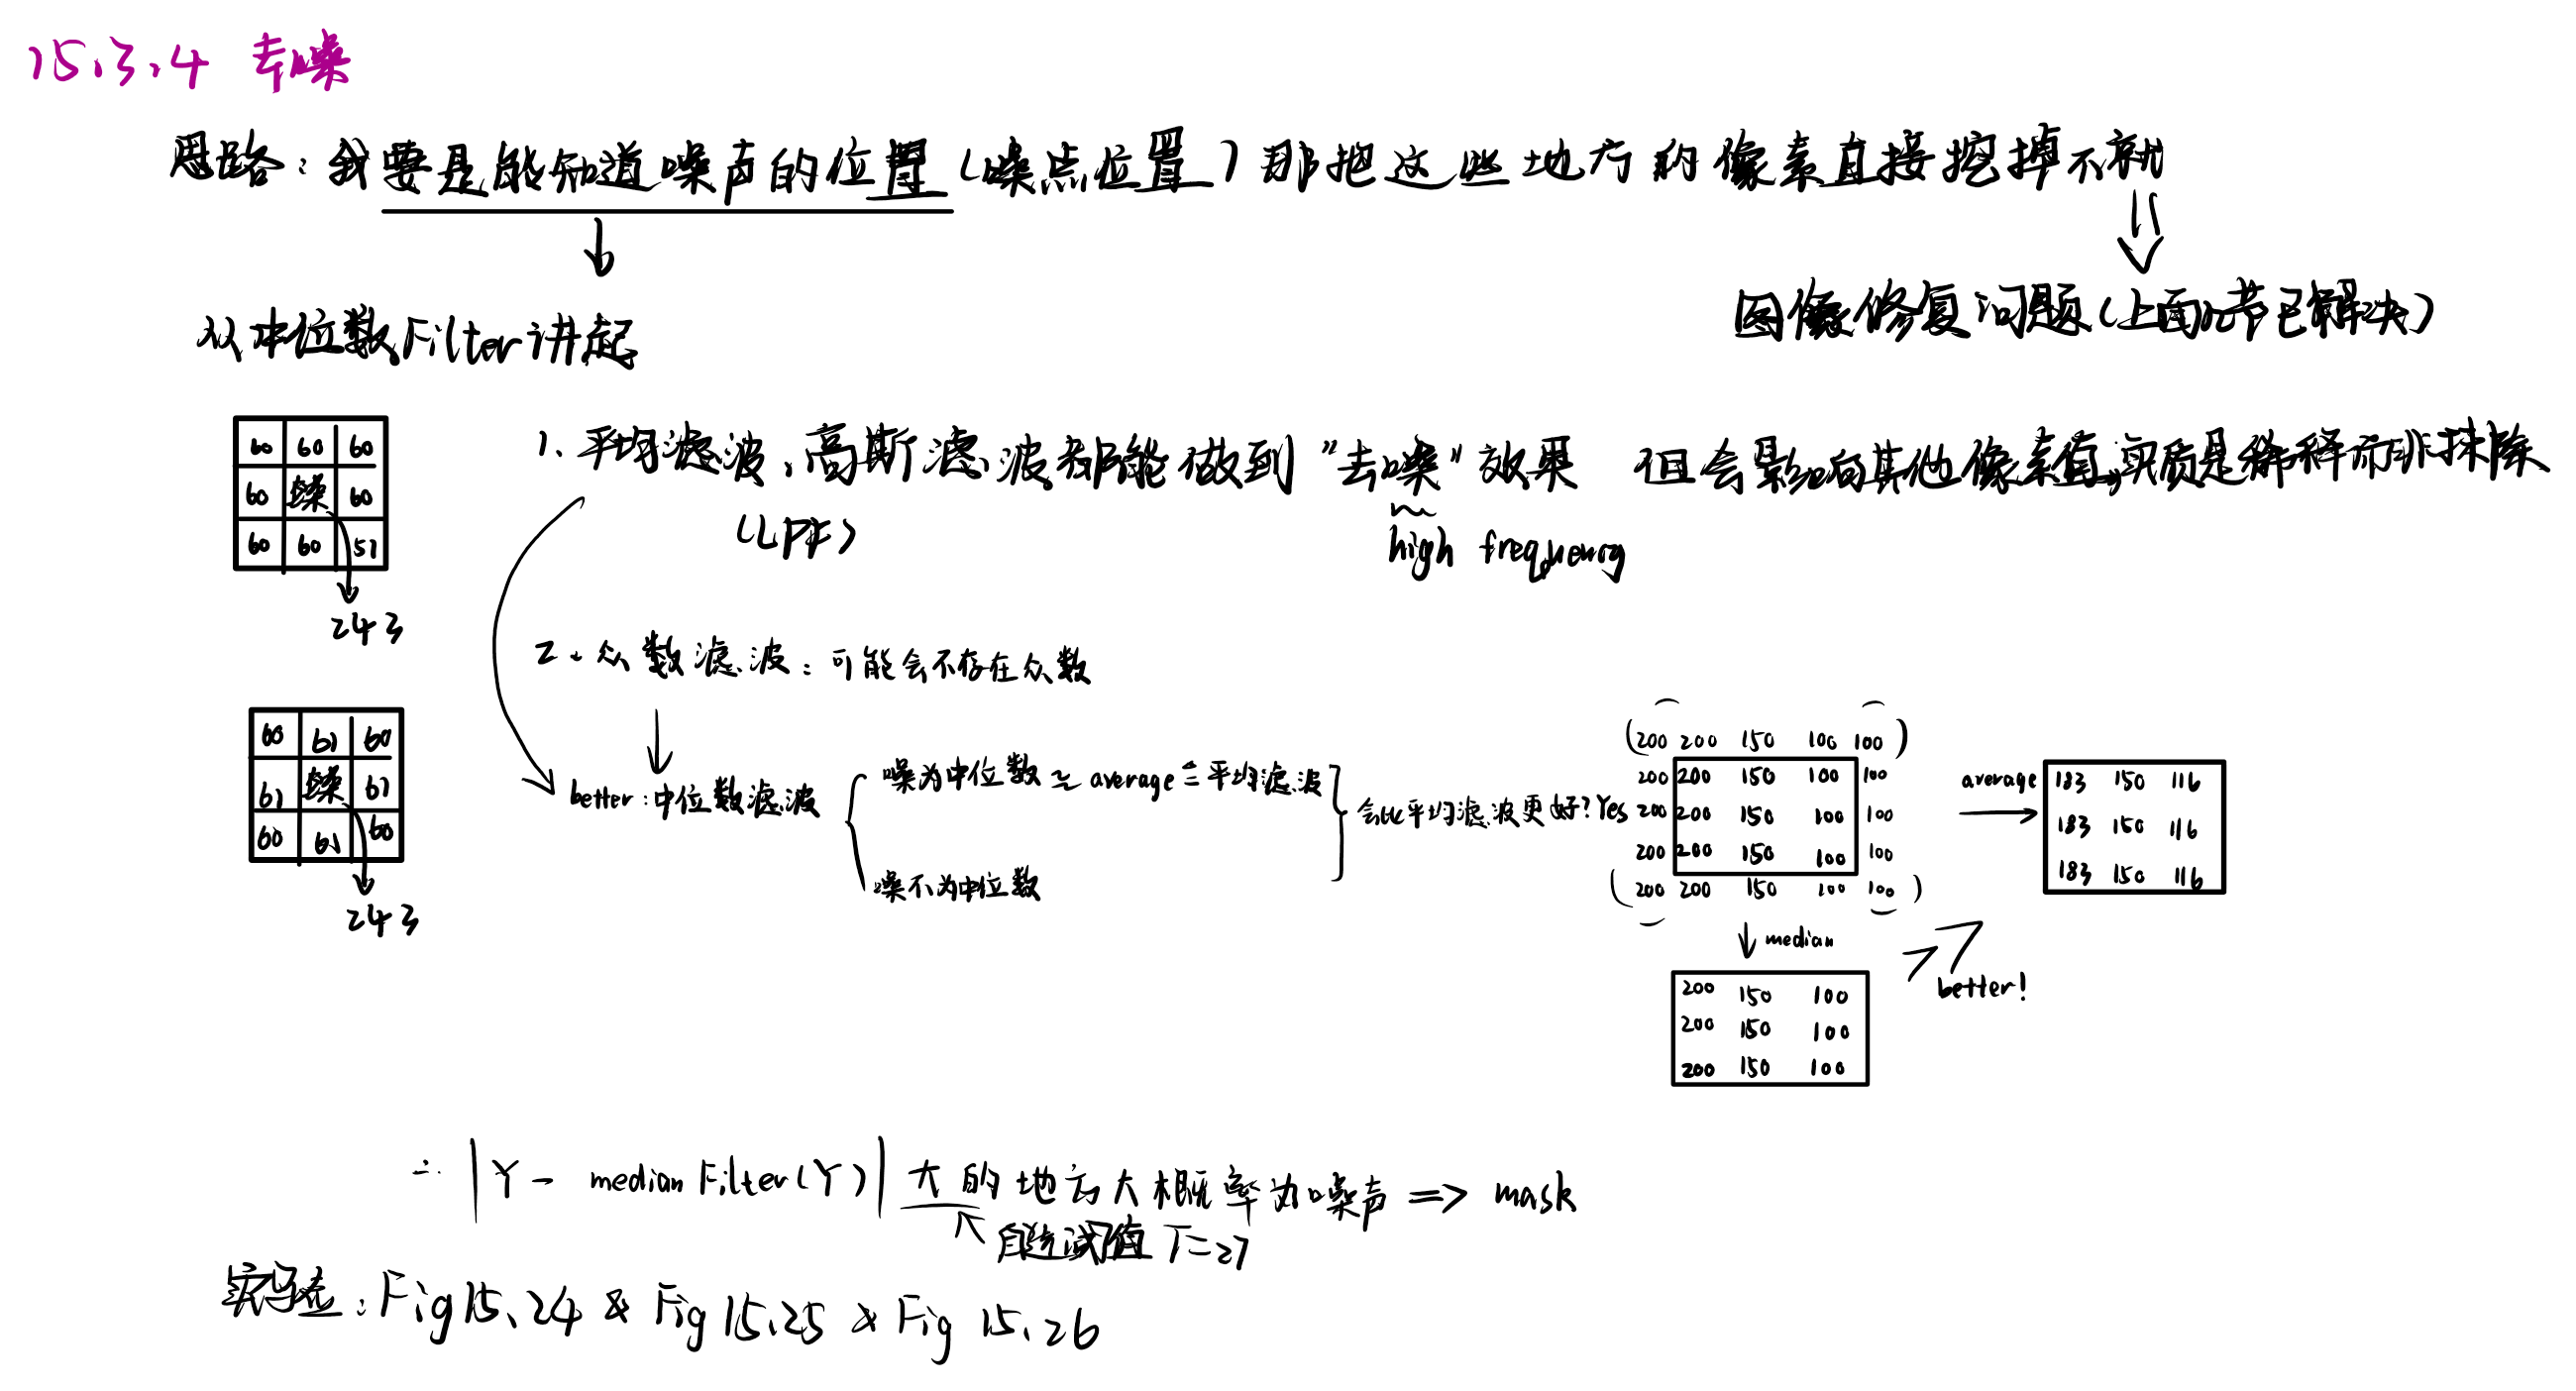 15.3.4 去噪
思路：我要是能知道噪声的位置（噪点位置）那把这些地方的像素直接挖掉不就
从中位数Filter讲起
图像修复问题（上面几节已解决）
60 60 60
60 噪 60
60 60 51
243
1. 平均滤波、高斯滤波都能做到"去噪"效果 但会影响其他像素值，实质是稀释而非抹除
(LPF)
high frequency
2. 众数滤波：可能会不存在众数
60 61 60
61 噪 61
60 61 60
243
better：中位数滤波
噪为中位数 ≃ average = 平均滤波
噪不为中位数
会比平均滤波更好？Yes
(200 200 150 100 100)
200 200 150 100 100
200 200 150 100 100
200 200 150 100 100
(200 200 150 100 100)
average
183 150 116
183 150 116
183 150 116
median
better!
200 150 100
200 150 100
200 150 100
∴ |Y - median Filter(Y)| 大的地方大概率为噪声 => mask
自选阈值 T=27
实验：Fig 15.24 & Fig 15.25 & Fig 15.26